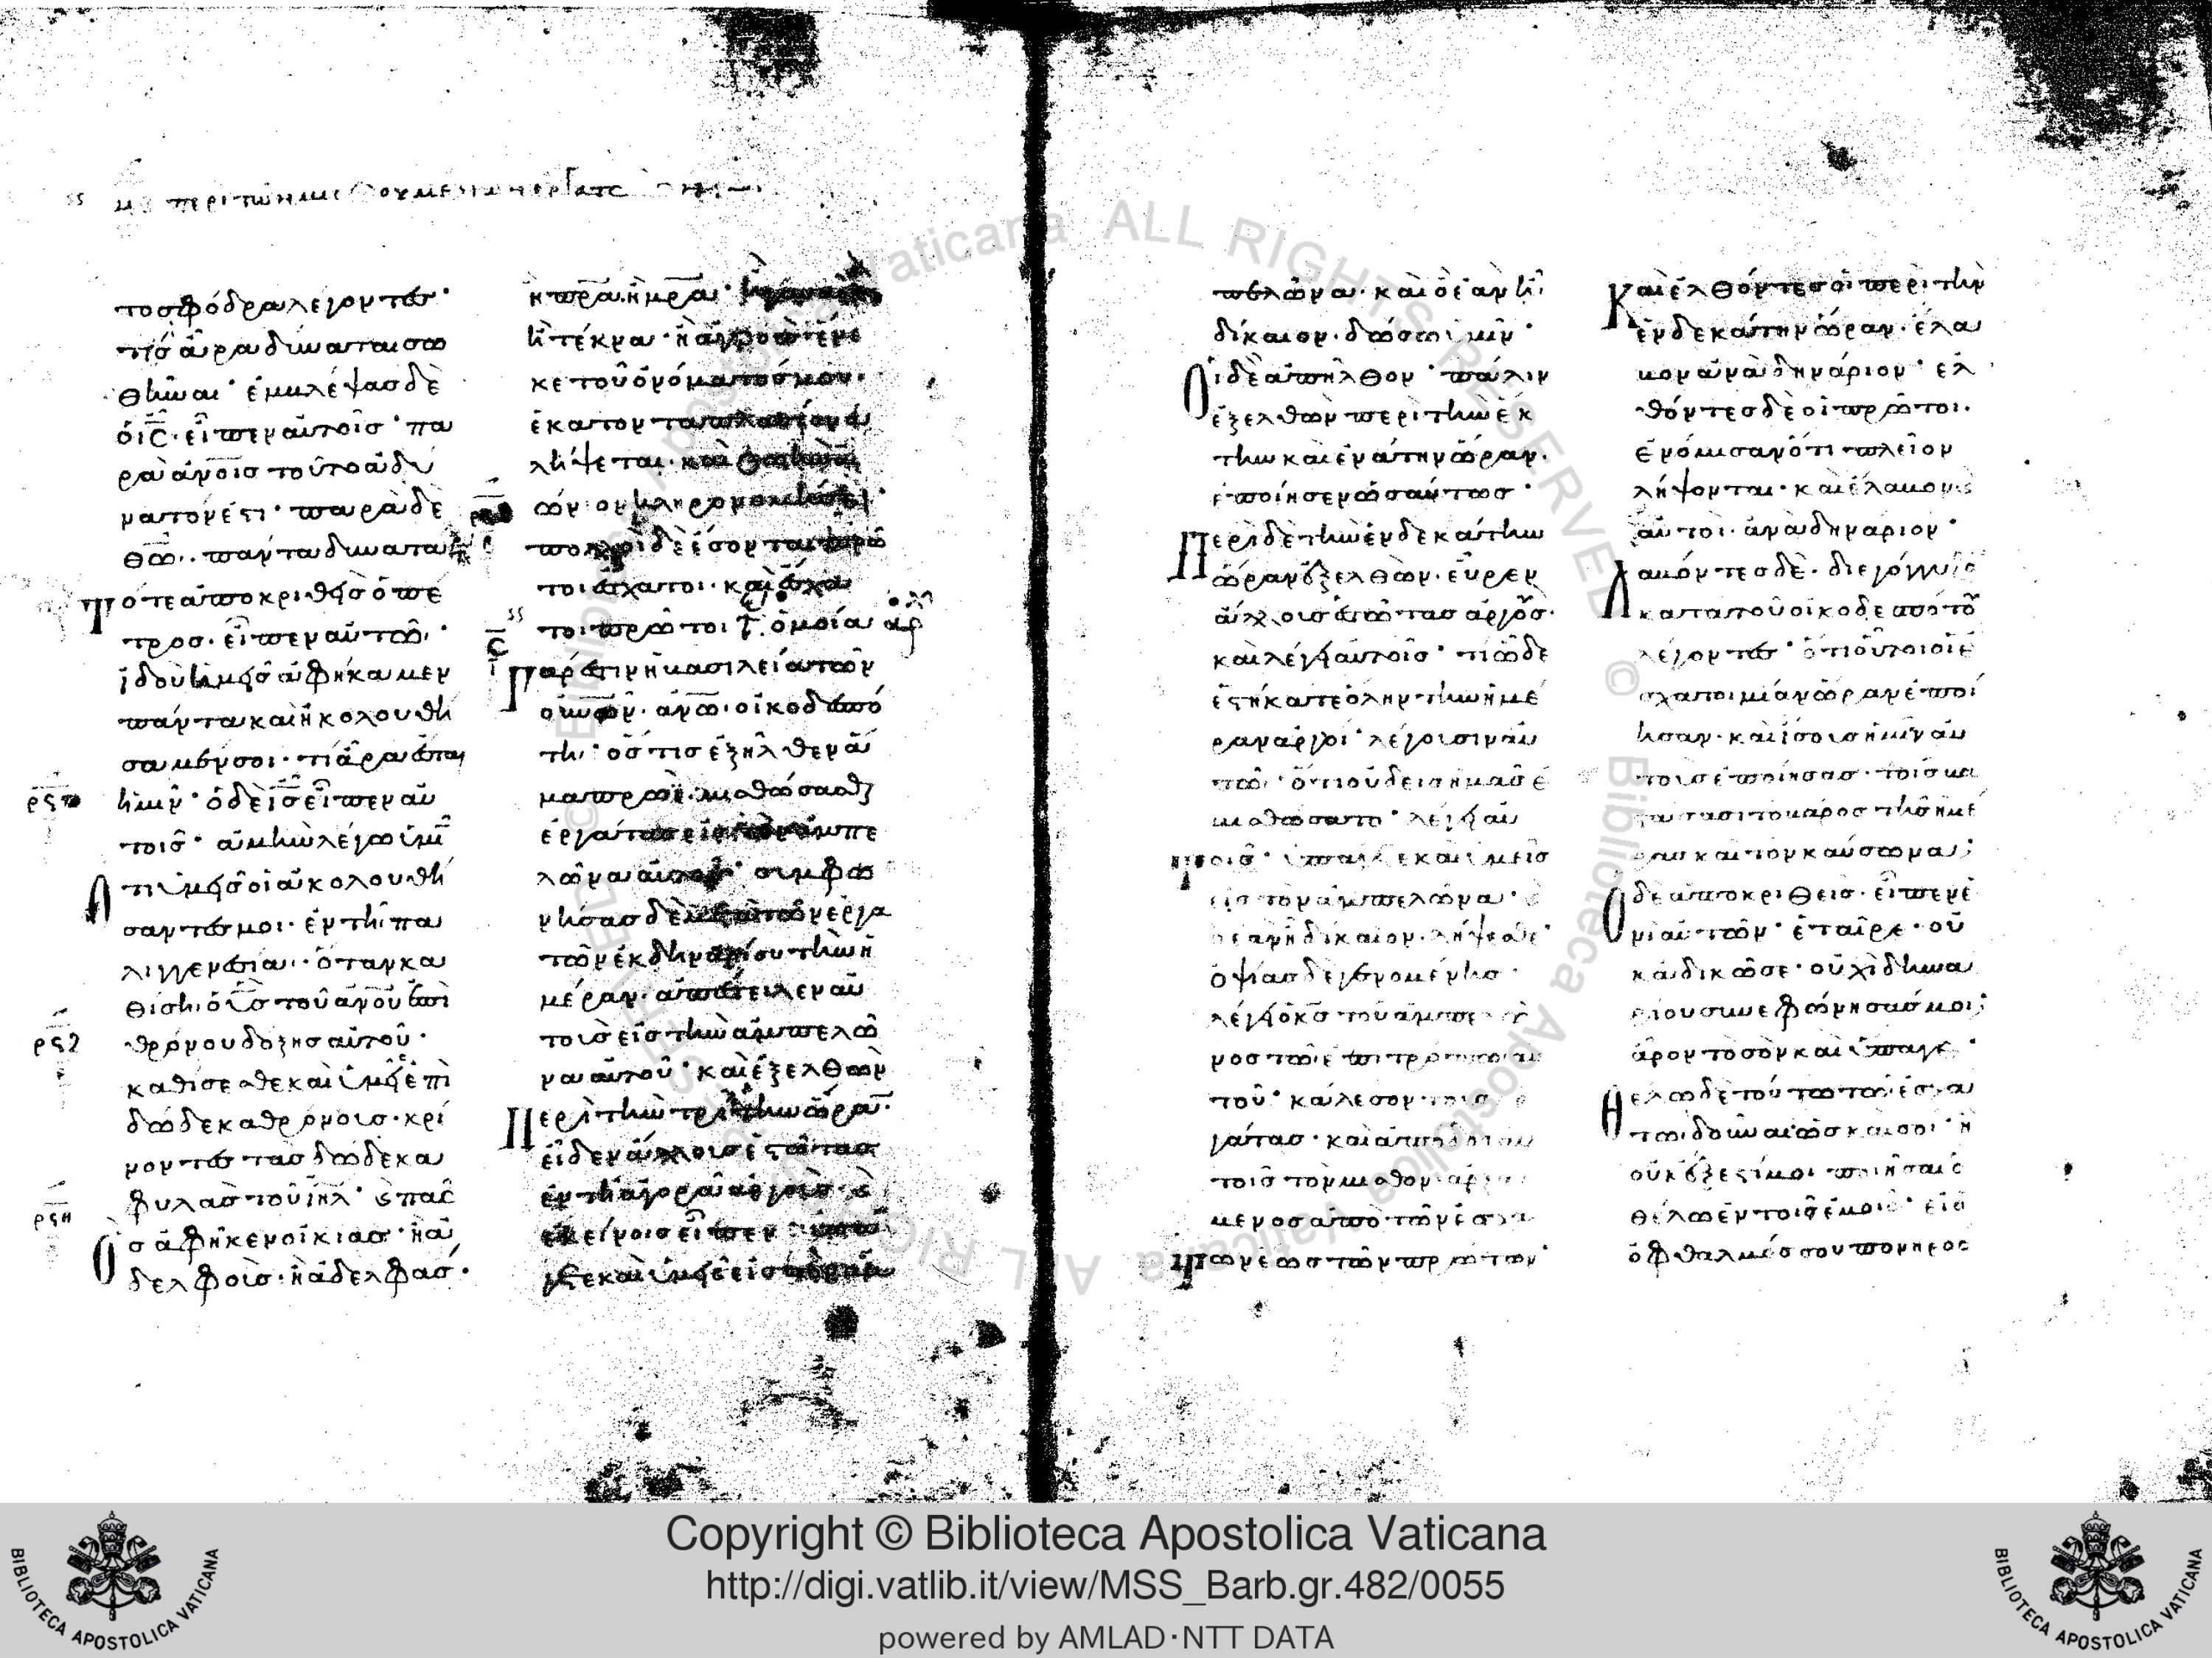 περι των μισθουμενων εργατ
το σφόδρα λέγοντες·
τίς ἄρα δύναται σω
θῆναι· ἐμβλέψας δὲ
ὁ ις̅· εἶπεν αὐτοῖς· πα
ρὰ ἀν̅οις τοῦτο ἀδύ
νατον ἐστι· παρὰ δὲ
θω̅· πάντα δυνατα
Τότε ἀποκριθεὶς ὁ πέ
τρος· εἶπεν αὐτῶ·
ἰδοὺ ἡμεῖς ἀφήκαμεν
πάντα καὶ ἠκολουθή
σαμέν σοι· τί ἄρα ἔσται
ρϟϛ
ἡμῖν· ὁ δὲ ις̅ εἶπεν αὐ
τοῖς· ἀμὴν λέγω ὑμῖ
ὅτι ὑμεῖς οἱ ἀκολουθή
σαντές μοι· ἐν τῆ πα
λιγγενεσία· ὅταν κα
θίση ὁ υς̅ τοῦ αν̅ου ἐπὶ
ρϟζ
θρόνου δόξης αὐτοῦ·
καθίσεσθε καὶ ὑμεῖς ἐπὶ
δώδεκα θρόνους· κρί
νοντες τὰς δώδεκα
φυλὰς τοῦ ιη̅λ· ϗ πᾶς
ρϟη
ὃς ἀφῆκεν οἰκίας· ἢ ἀ
δελφοὺς· ἢ ἀδελφάς·
ἢ πρ̅α· ἢ μρ̅α· ἢ γυναῖκα
ἢ τέκνα· ἢ ἀγροὺς ἕνε
κε τοῦ ὀνόματός μου·
ἑκατονταπλασίονα
λήψεται· καὶ ζωὴν αἰ
ών�ον κληρονομήσει·
πολλοὶ δὲ ἔσονται πρῶ
τοι ἔσχατοι· καὶ ἔσχα
τοι πρῶτοι· ὁμοία αρ
γάρ ἐστιν ἡ βασιλεία τῶν
οὐν̅ων· αν̅ω οἰκοδεσπό
τη· ὅστις ἐξῆλθεν ἅ
μα πρωῒ· μισθώσασθ
ἐργάτας εἰς τὸν ἀμπε
λῶνα αὐτοῦ· συμφω
νήσας δὲ μετὰ τῶν ἐργα
τῶν ἐκ δηναρίου τὴν ἡ
μέραν· ἀπέστειλεν αὐ
τοὺς εἰς τὴν ἀμπελῶ
να αὐτοῦ· καὶ ἐξελθὼν
Περὶ τὴν τρίτην ὥραν·
εἶδεν ἄλλους ἑστῶτας
ἐν τῆ ἀγορᾶ ἀργοὺς· ϗ
ἐκείνοις εἶπεν· ὑπά
γετε καὶ ὑμεῖς εἰς τὸν ἀμ
πελῶνα· καὶ ὃ ἐὰν ἦ
δίκαιον· δώσω ὑμῖν·
Οἱ δὲ ἀπῆλθον· πάλιν
ἐξελθὼν περὶ τὴν ἕκ
την καὶ ἐνάτην ὥραν·
ἐποίησεν ὡσαύτως·
Περὶ δὲ τὴν ἑνδεκάτην
ὥραν ἐξελθὼν· εὗρεν
ἄλλους ἑστῶτας ἀργοὺς·
καὶ λέγει αὐτοῖς· τί ὧδε
ἑστήκατε ὅλην τὴν ἡμέ
ραν ἀργοί· λέγουσιν αὐ
τῶ· ὅτι οὐδεὶς ἡμᾶς ἐ
μισθώσατο· λέγει αὐ
τοῖς· ὑπάγετε καὶ ὑμεῖς
εἰς τὸν ἀμπελῶνα· ϗ
ὃ ἐὰν ἦ δίκαιον· λήψεσθε·
ὀψίας δὲ γενομένης·
λέγει ὁ κς̅ τοῦ ἀμπελῶ
νος τῶ ἐπιτρόπω αὐ
τοῦ· κάλεσον τοὺς ἐρ
γάτας· καὶ ἀπόδος αὐ
τοῖς τὸν μισθὸν· ἀρξά
μενος ἀπὸ τῶν ἐσχά
των ἕως τῶν πρώτων·
Καὶ ἐλθόντες οἱ περὶ τὴν
ἑνδεκάτην ὥραν· ἔλα
βον ἀνὰ δηνάριον· ἐλ
θόντες δὲ οἱ πρῶτοι·
ἐνόμισαν ὅτι πλεῖον
λήψονται· καὶ ἔλαβον ϗ
αὐτοὶ· ἀνὰ δηνάριον·
Λαβόντες δὲ· διεγόγγυζο
κατὰ τοῦ οἰκοδεσπότου
λέγοντες· ὅτι οὗτοι οἱ ἔ
σχατοι μίαν ὥραν ἐποί
ησαν· καὶ ἴσους ἡμῖν αὐ
τοὺς ἐποίησας· τοῖς βα
στάσασι τὸ βάρος τῆς ἡμέ
ρας καὶ τὸν καύσωνα;
Ὁ δὲ ἀποκριθεὶς· εἶπεν ἑ
νὶ αὐτῶν· ἑταῖρε· οὐ
κ ἀδικῶ σε· οὐχὶ δηνα
ρίου συνεφώνησάς μοι;
ἆρον τὸ σὸν καὶ ὕπαγε·
Θέλω δὲ τούτω τῶ ἐσχά
τω δοῦναι ὡς καὶ σοί· ἢ
οὐκ ἔξεστί μοι ποιῆσαι ὃ
θέλω ἐν τοῖς ἐμοῖς· εἰ ὁ
ὀφθαλμός σου πονηρὸς
Copyright © Biblioteca Apostolica Vaticana
http://digi.vatlib.it/view/MSS_Barb.gr.482/0055
powered by AMLAD·NTT DATA